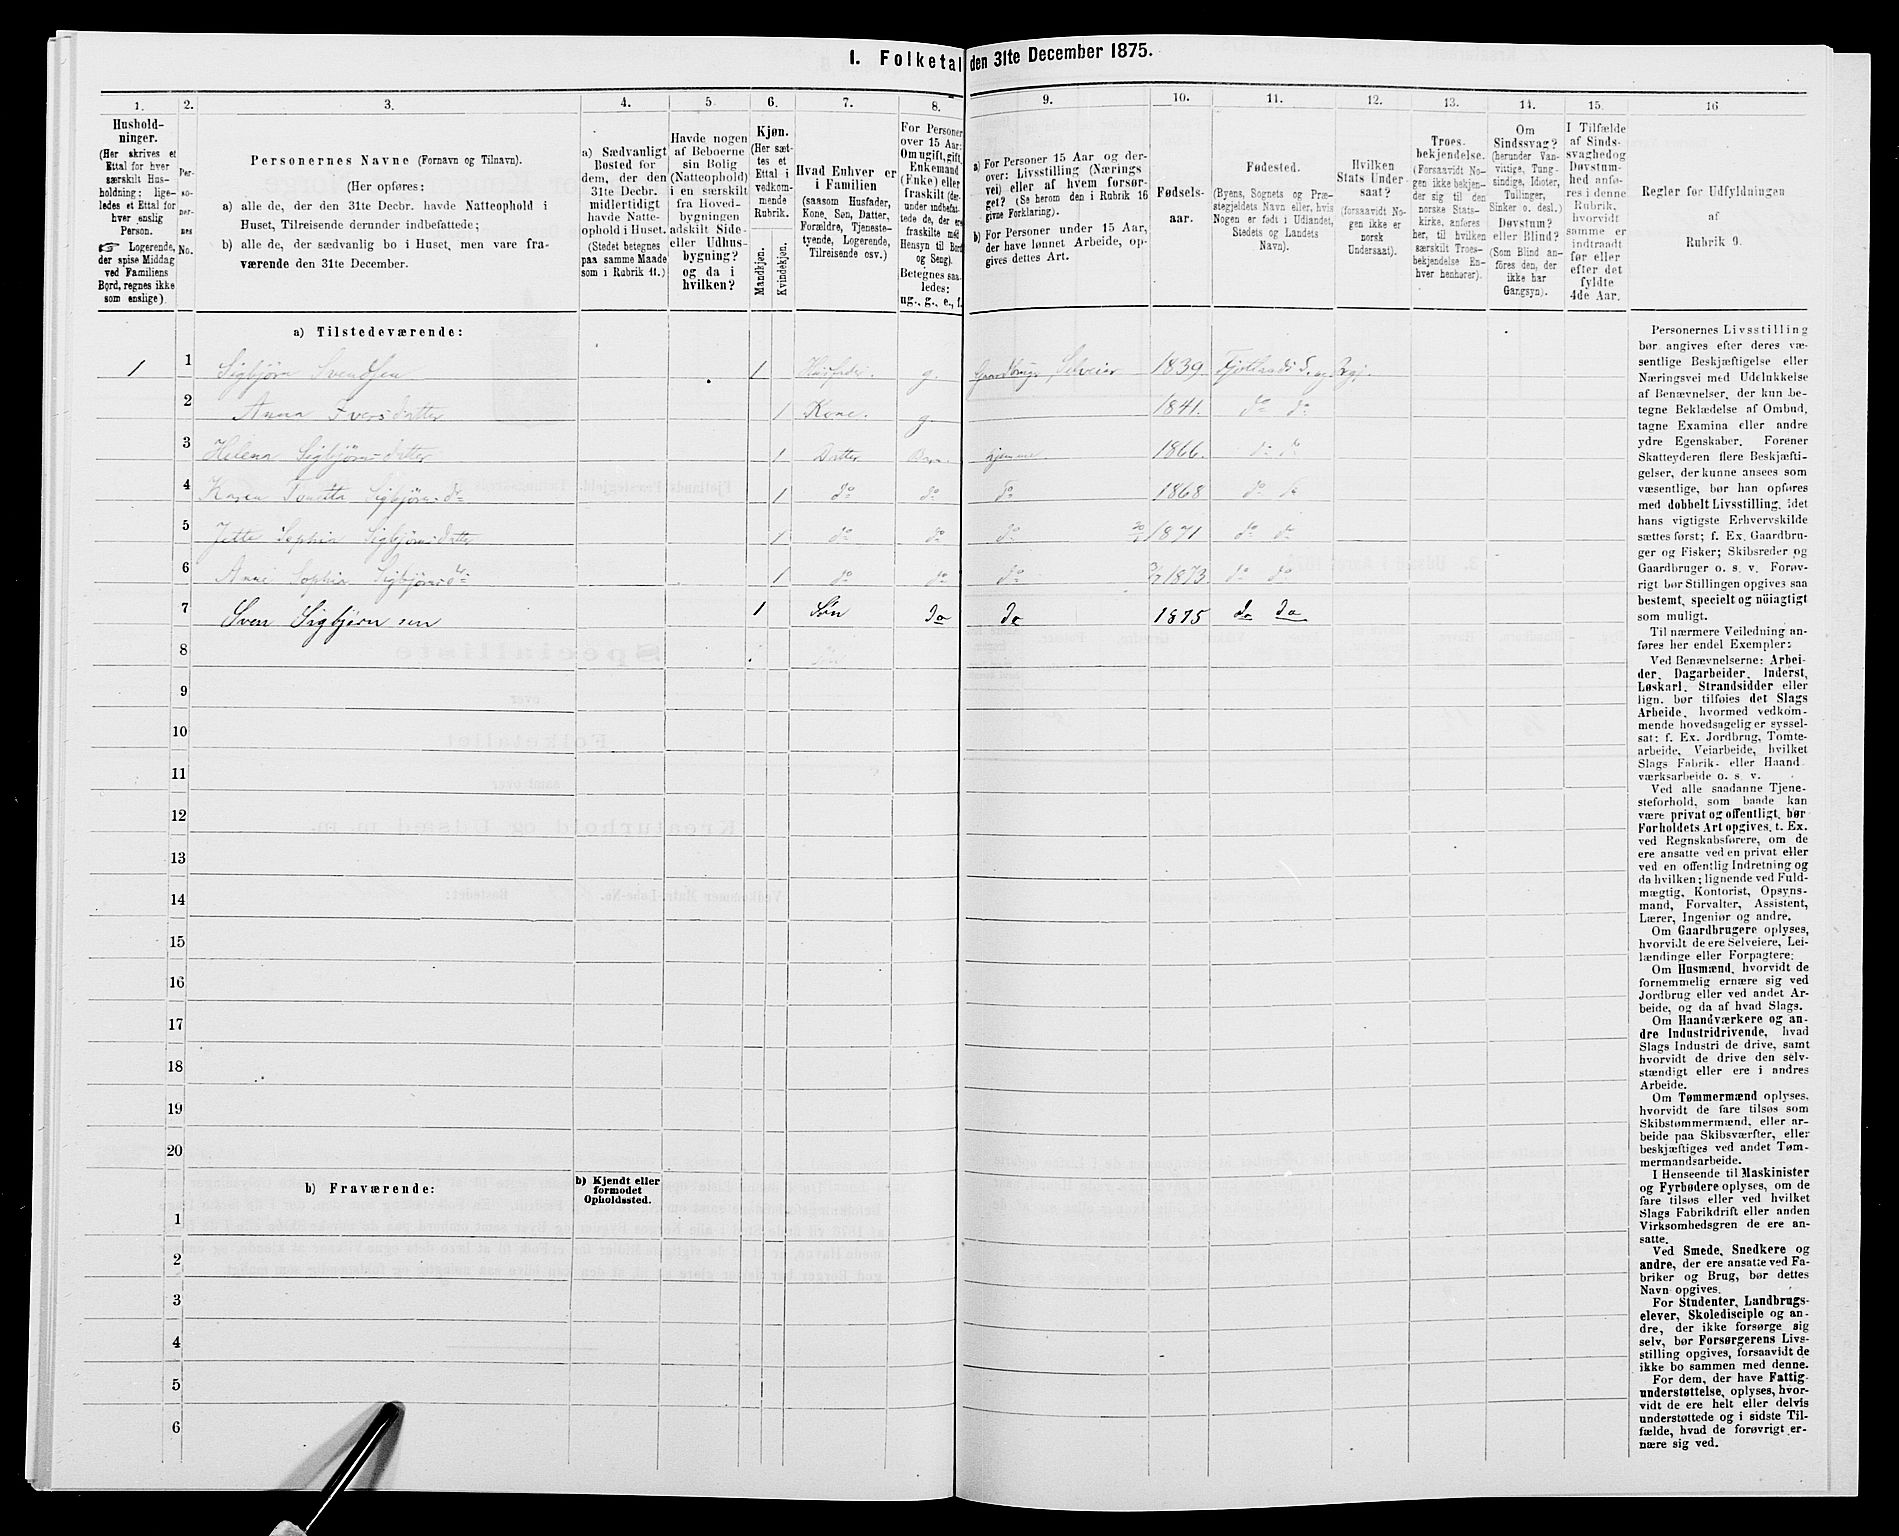 1. Folketal den 31te December 1875.
1. 2. 3. 4. 5. 6. 7. 8. 9. 10. 11. 12. 13. 14. 15. 16
Hushold-
ninger.
(Her skrives et
Ettal for hver
særskilt Hus-
holdning; lige-
ledes et Ettal for
hver enslig
Person.
☞ Logerende,
der spise Middag
ved Familiens
Bord, regnes ikke
som enslige).
Per-
so-
ner-
nes
No.
Personernes Navne (Fornavn og Tilnavn).
(Her opføres:
a) alle de, der den 31te Decbr. havde Natteophold i
Huset, Tilreisende derunder indbefattede;
b) alle de, der sædvanlig bo i Huset, men vare fra-
værende den 31te December.
a) Sædvanligt
Bosted for
dem, der den
31te Decbr.
midlertidigt
havde Natte-
ophold i Huset.
(Stedet betegnes
paa samme Maade
som i Rubrik 11.)
Havde nogen
af Beboerne
sin Bolig
(Natteophold)
i en særskilt
fra Hoved-
bygningen
adskilt Side-
eller Udhus-
bygning?
og da i
hvilken?
Kjøn.
(Her sæt-
tes et
Ettal i
vedkom-
mende
Rubrik.
Mandkjøn.
Kvindekjøn.
Hvad Enhver er
i Familien
(saasom Husfader,
Kone, Søn, Datter,
Forældre, Tjeneste-
tyende, Logerende,
Tilreisende osv.)
For Personer
over 15 Aar:
Om ugift, gift,
Enkemand
(Enke) eller
fraskilt (der-
under indbefat-
tede de, der ere
fraskilte med
Hensyn til Bord
og Seng).
Betegnes saa-
ledes:
ug., g., e., f.
a) For Personer 15 Aar og der-
over: Livsstilling (Nærings
vei) eller af hvem forsør-
get? (Se herom den i Rubrik 16
givne Forklaring).
b) For Personer under 15 Aar,
der have lønnet Arbeide, op-
gives dettes Art.
Fødsels-
aar.
Fødested.
(Byens, Sognets og Præ-
stegjeldets Navn eller, hvis
Nogen er født i Udlandet,
Stedets og Landets
Navn).
Hvilken
Stats Under-
saat?
(forsaavidt No-
gen ikke er
norsk
Undersaat).
Troes-
bekjendelse.
(Forsaavidt No-
gen ikke bekjen-
der sig til den
norske Stats-
kirke, anføres
her, til hvilken
særskilt Troes-
bekjendelse En-
hver henhører).
Om
Sindssvag?
(herunder Van-
vittige, Tung-
sindige, Idioter,
Tullinger,
Sinker o. desl.)
Døvstum?
eller Blind?
(Som Blind an-
føres den, der
ikke har
Gangsyn).
I Tilfælde
af Sinds-
svaghed og
Døvstum-
hed anfø-
res i denne
Rubrik,
hvorvidt
samme er
indtraadt
før eller
efter det
fyldte
4de Aar.
Regler for Udfyldningen
af
Rubrik 9.
a) Tilstedeværende:
1 1 Sigbjørn Svendsen 1 Husfader. g. Gaardbruger Selveier 1839.
2 Anna Iversdatter 1 Kone. g 1841. do do
3 Helena Sigbjørnsdatter 1 Datter 1866. do do
4 Karen Tonetta Sigbjørnsdr 1 do do do 1868 do do
5 Jette Sophia Sigbjørnsdatter 1 do do do 1871 do do
6 Anne Sophia Sigbjørnsdr 1 do do do 1873. do do
7 Sven Sigbjørnsen 1 Søn do do 1875 do do
8
9
10
11
12
13
14
15
16
17
18
19
20
b) Fraværende:
b) Kjendt eller
formodet
Opholdssted.
1
2
3
4
5
6
Personernes Livsstilling
bør angives efter deres væ-
sentlige Beskjæftigelse eller
Næringsvei med Udelukkelse
af Benævnelser, der kun be-
tegne Beklædelse af Ombud,
tagne Examina eller andre
ydre Egenskaber. Forener
Skatteyderen flere Beskjæfti-
gelser, der kunne ansees som
væsentlige, bør han opføres
med dobbelt Livsstilling, idet
hans vigtigste Erhvervskilde
sættes først; f. Ex. Gaardbru-
ger og Fisker; Skibsreder og
Gaardbruger o. s. v. Forøv-
rigt bør Stillingen opgives saa
bestemt, specielt og nöiagtigt
som muligt.
Til nærmere Veiledning an-
føres her endel Exempler:
Ved Benævnelserne: Arbei-
der, Dagarbeider, Inderst,
Løskarl, Strandsidder eller
lign. bør tilføies det Slags
Arbeide, hvormed vedkom-
mende hovedsagelig er syssel-
sat; f. Ex. Jordbrug, Tomte-
arbeide, Veiarbeide, hvilket
Slags Fabrik- eller Haand-
værksarbeide o. s. v.
Ved alle saadanne Tjene-
steforhold, som baade kan
være privat og offentligt, bør
Forholdets Art opgives, t. Ex.
ved Regnskabsførere, om de
ere ansatte ved en privat eller
ved en offentlig Indretning og
da hvilken; lignende ved Fuld-
mægtig, Kontorist, Opsyns-
mand, Forvalter, Assistent,
Lærer, Ingeniør og andre.
Om Gaardbrugere oplyses,
hvorvidt de ere Selveiere, Lei-
lændinge eller Forpagtere;
Om Husmænd, hvorvidt de
fornemmelig ernære sig ved
Jordbrug eller ved andet Ar-
beide, og da af hvad Slags.
Om Haandværkere og an-
dre Industridrivende, hvad
Slags Industri de drive, samt
hvorvidt de drive den selv-
stændigt eller ere i andres
Arbeide.
Om Tømmermænd oplyses,
hvorvidt de fare tilsøs som
Skibstømmermænd, eller ar-
beide paa Skibsværfter, eller
beskjæftiges ved andet Tøm-
mermandsarbeide.
I Henseende til Maskinister
og Fyrbødere oplyses, om de
fare tilsøs eller ved hvilket
Slags Fabrikdrift eller anden
Virksomhedsgren de ere an-
satte.
Ved Smede, Snedkere og
andre, der ere ansatte ved Fa-
briker og Brug, bør dettes
Navn opgives.
For Studenter, Landbrugs-
elever, Skoledisciple og an-
dre, der ikke forsørge sig
selv, bør Forsørgerens Livs-
stilling opgives, forsaavidt de
ikke bo sammen med denne.
For dem, der have Fattig-
understøttelse, oplyses, hvor-
vidt de ere helt eller delvis
understøttede og i sidste Til-
fælde, hvad de forøvrigt er-
nære sig ved.